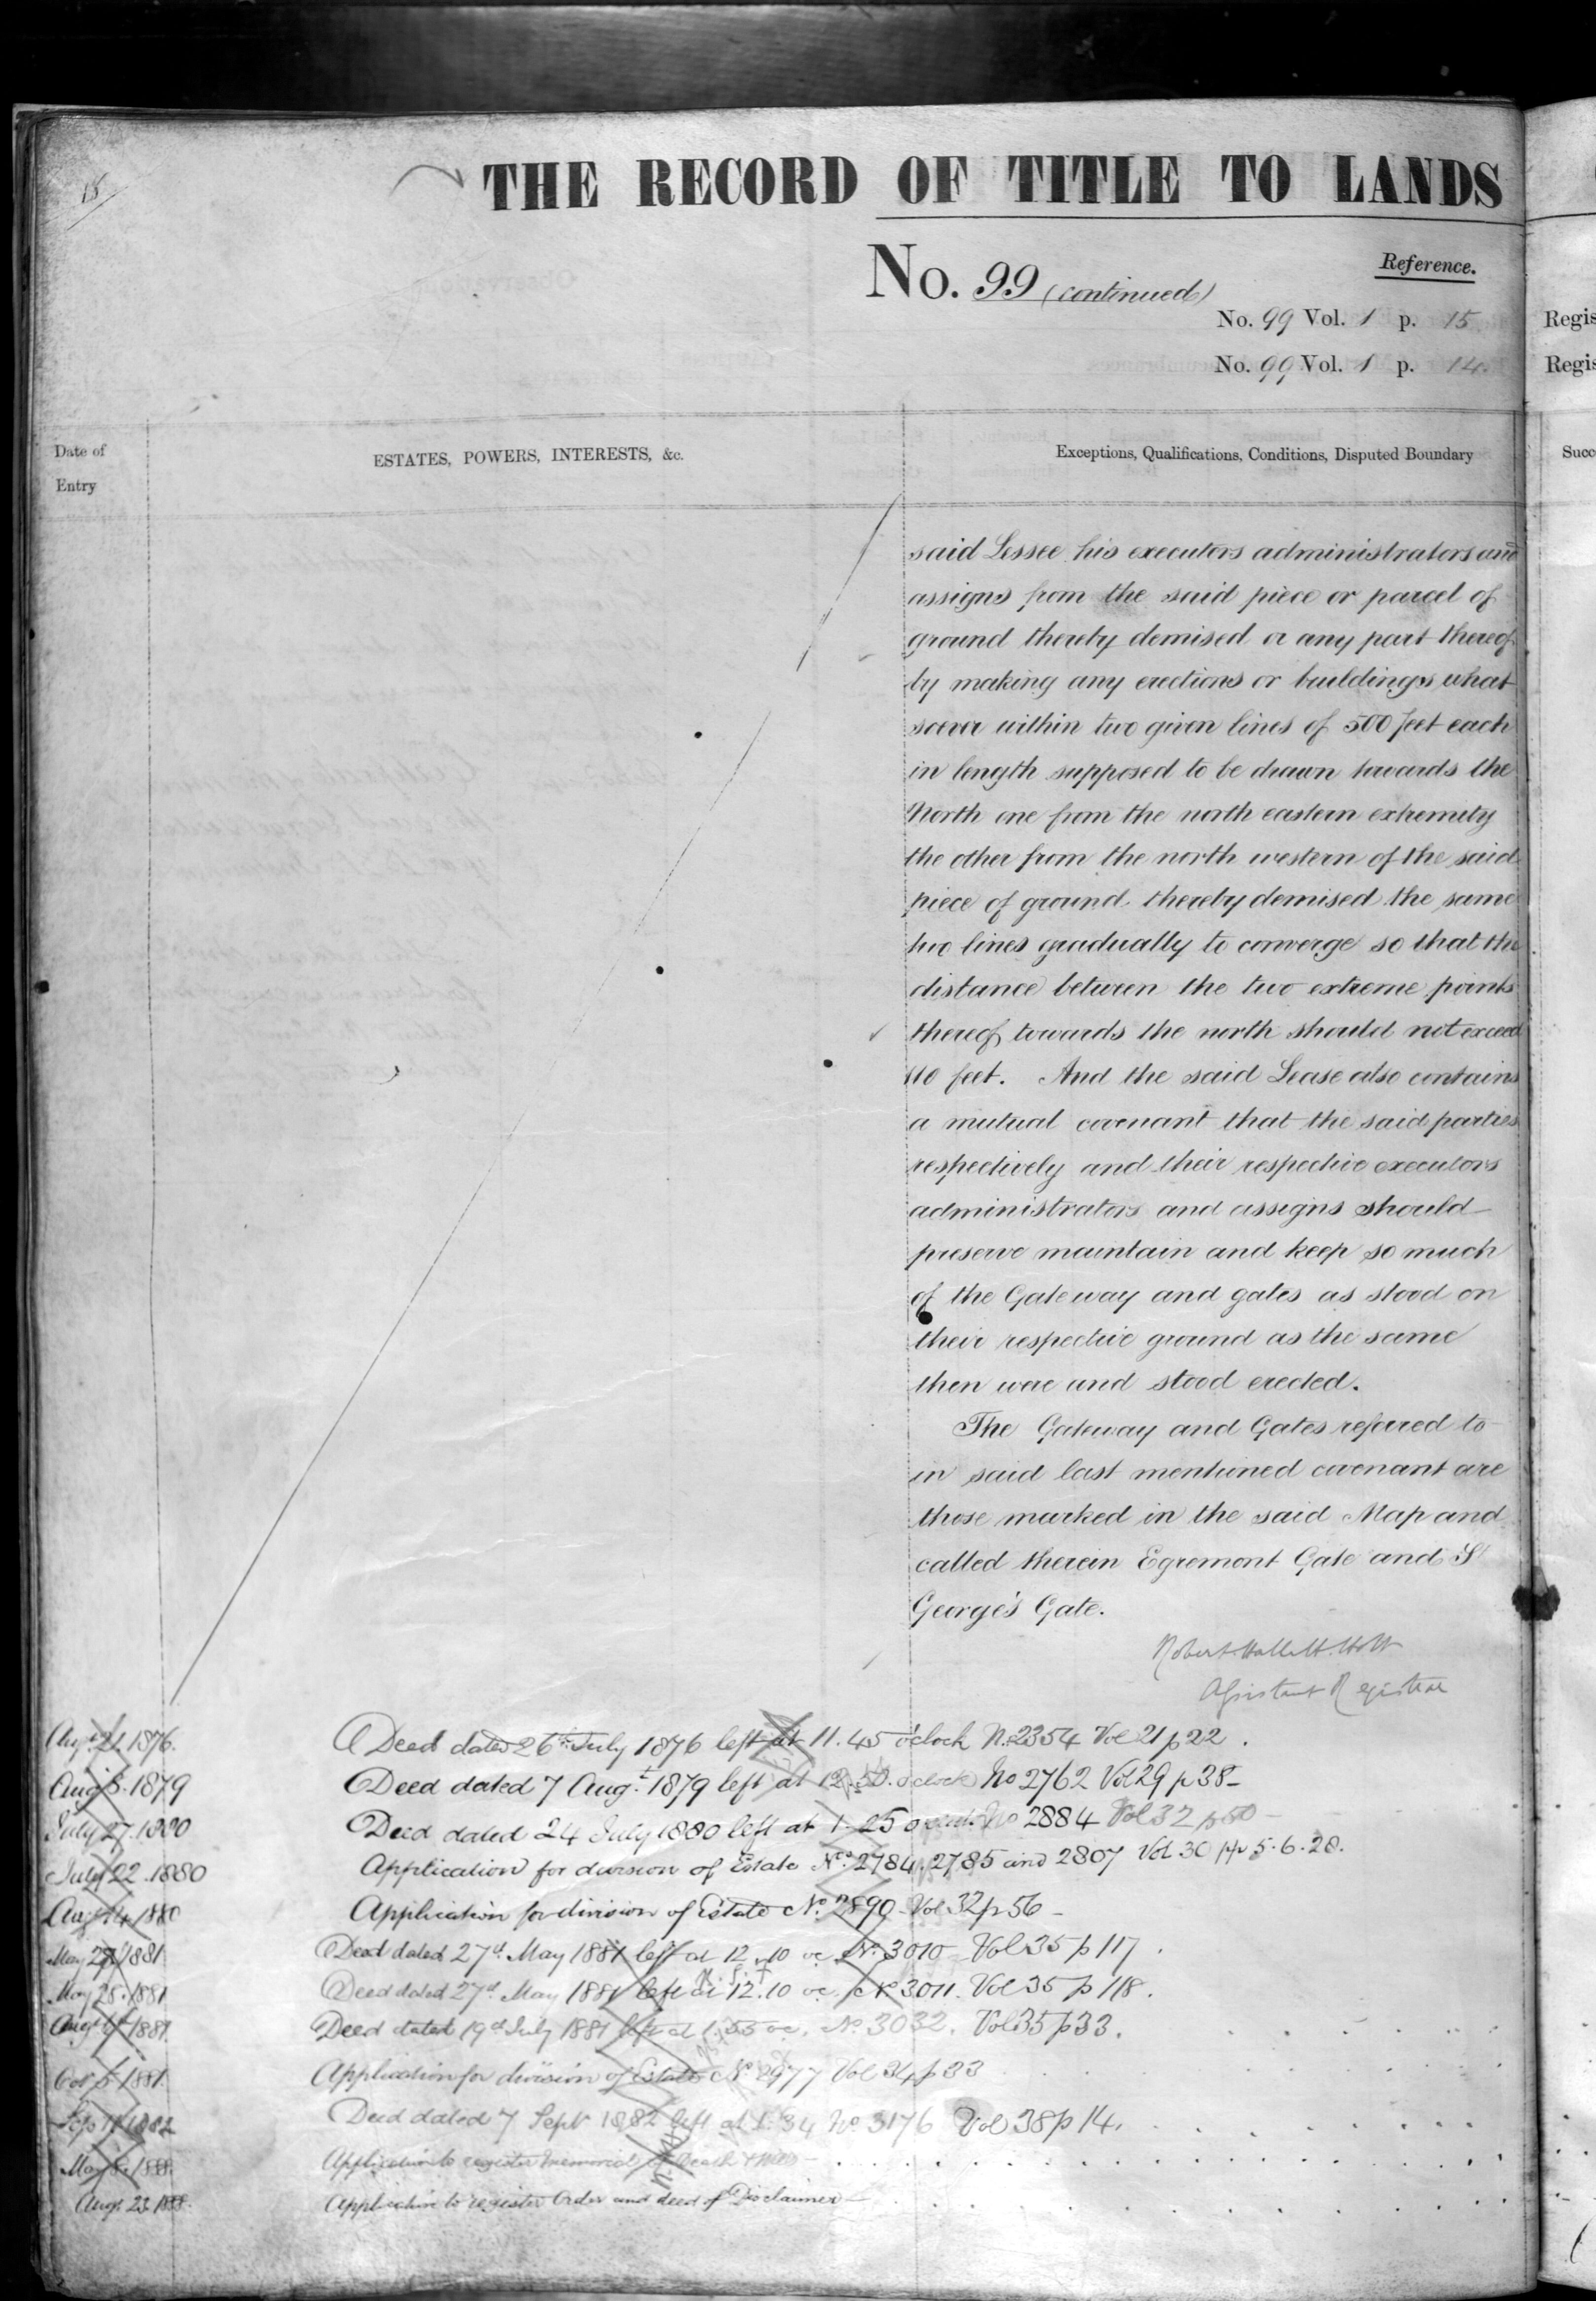 15
THE RECORD OF TITLE TO LANDS
No. 99 (continued)
Reference.
No. 99 Vol. 1 p. 15
No. 99 Vol. 1 p. 14.
Regis
Regis
Date of
Entry
ESTATES, POWERS, INTERESTS, &c.
Exceptions, Qualifications, Conditions, Disputed Boundary
Succ
said Lessee his executors administrators and
assigns from the said piece or parcel of
ground thereby demised or any part thereof
by making any erections or buildings what
soever within two given lines of 500 feet each
in length supposed to be drawn towards the
North one from the north eastern extremity
the other from the north western of the said
piece of ground thereby demised the same
two lines gradually to converge so that the
distance between the two extreme points
thereof towards the north should not exceed
110 feet. And the said Lease also contains
a mutual covenant that the said parties
respectively and their respective executors
administrators and assigns should
preserve maintain and keep so much
of the Gateway and gates as stood on
their respective ground as the same
then were and stood erected.
The Gateway and Gates referred to
in said last mentioned covenant are
those marked in the said Map and
called therein Egremont Gate and St
George's Gate.
Robert Hallett Holt
Assistant Registrar
Aug. 21. 1876. Deed dated 26th July 1876 left at 11.45 o'clock No. 2354 Vol 21 p 22.
Aug 8. 1879 Deed dated 7 Augt. 1879 left at 12.50. o'clock No 2762 Vol 29 p 38-
July 27. 1880 Deed dated 24 July 1880 left at 1.25 No 2884 Vol 32 p 50-
July 22. 1880 Application for division of Estate Nos. 2784. 2785 and 2807 Vol 30 pp 5. 6. 28.
Aug 14 1880 Application for division of Estate No. 2890 - Vol 32 p 56-
May 28 1881 Deed dated 27d. May 1881 left at 12.10 oc No. 3010 - Vol 35 p 117.
May 28. 1881 Deed dated 27d. May 1881 left at 12.10 oc No 3011. Vol 35 p 118.
Aug 1881. Deed dated 19d July 1881 left at 1.55 oc. No. 3032. Vol 35 p 33.
Oct 5 1881. Application for division of Estate No 2977 Vol 34 p 33
Sep 11 1882 Deed dated 7 Sept 1882 left at 1.34 No 3176 Vol 38 p 14.
May 1888. Application to register memorial of Death
Augt. 23. 1888. Application to register Order and deed of Disclaimer